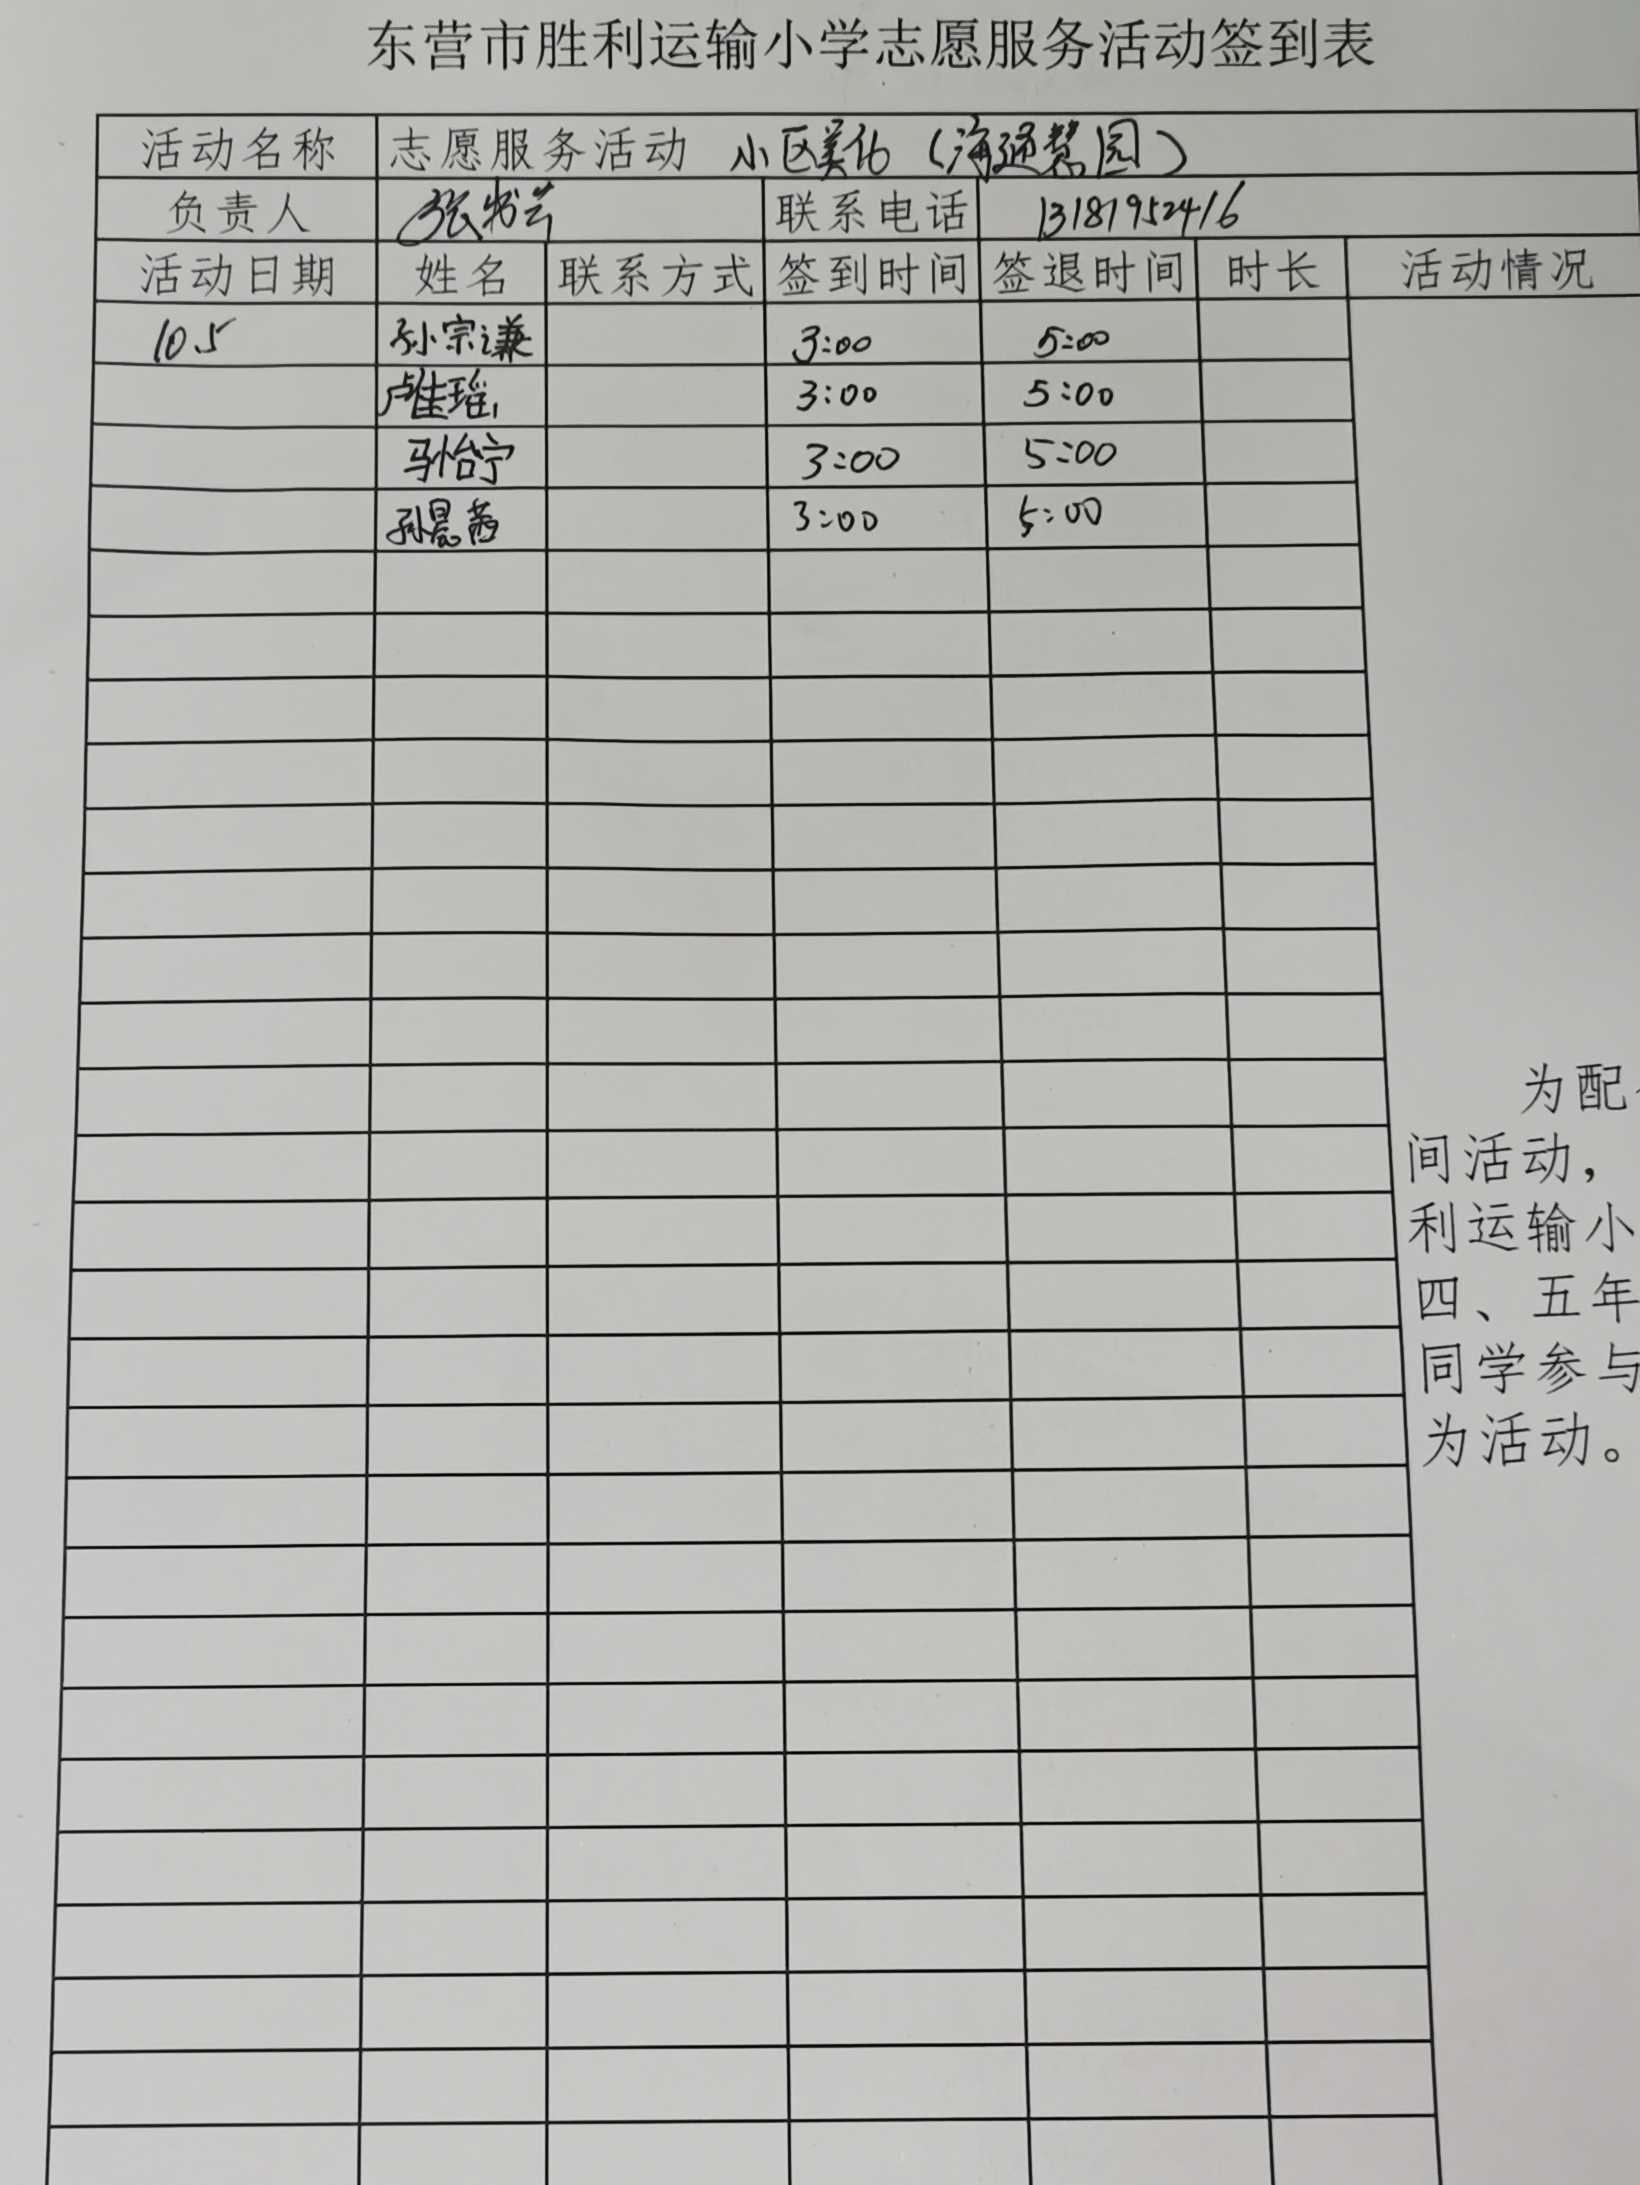 东营市胜利运输小学志愿服务活动签到表
活动名称 志愿服务活动 小区美化（海通慧园）
负责人 张 联系电话 13181952416
活动日期 姓名 联系方式 签到时间 签退时间 时长 活动情况
10.5 孙宗谦 3:00 5:00
卢佳瑶 3:00 5:00
马怡宁 3:00 5:00
孙晨茜 3:00 5:00
为配
间活动，
利运输小
四、五年
同学参与
为活动。